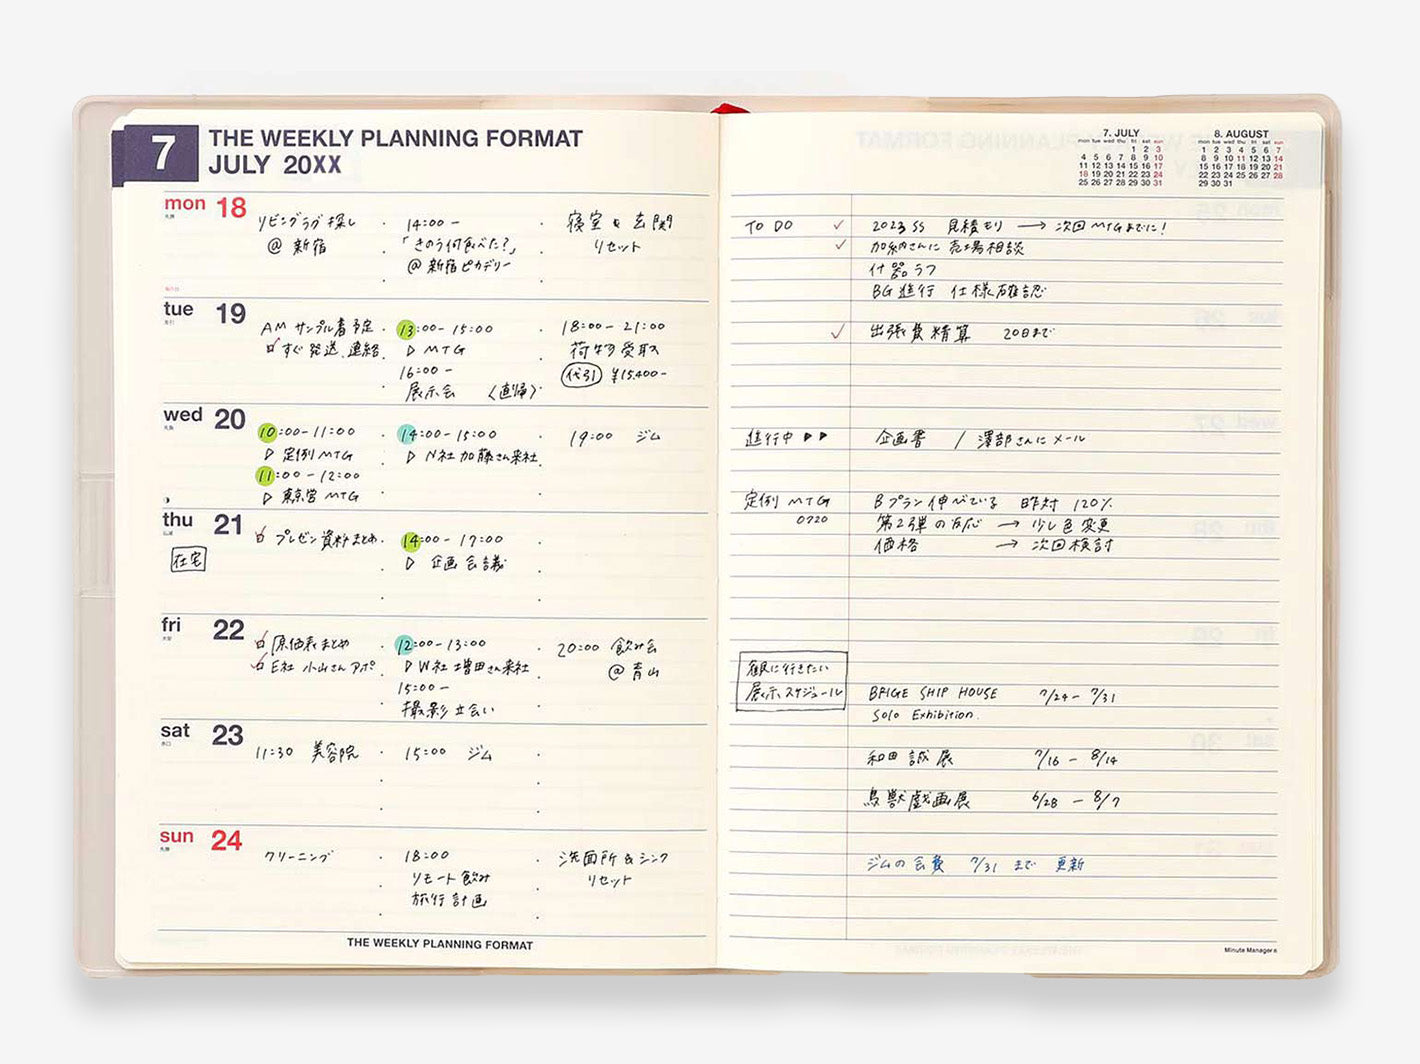 7
THE WEEKLY PLANNING FORMAT
JULY 20XX
mon 18
リビングラグ探し
@ 新宿
14:00 -
「きのう何食べた?」
@ 新宿ピカデリー
寝室 & 玄関
リセット
tue 19
AM サンプル着予定
すぐ発送、連絡
13:00 - 15:00
▷ MTG
16:00 -
展示会 〈直帰〉
18:00 - 21:00
荷物受取
代引 ¥15,400-
wed 20
10:00 - 11:00
▷ 定例MTG
11:00 - 12:00
▷ 東京営MTG
14:00 - 15:00
▷ N社 加藤さん来社
19:00 ジム
thu 21
在宅
プレゼン資料まとめ
14:00 - 17:00
▷ 企画会議
fri 22
原価表まとめ
E社 小山さんアポ
12:00 - 13:00
▷ W社 増田さん来社
15:00 -
撮影立会い
20:00 飲み会
@ 青山
sat 23
11:30 美容院
15:00 ジム
sun 24
クリーニング
18:00
リモート飲み
旅行計画
洗面所 & シンク
リセット
THE WEEKLY PLANNING FORMAT
7. JULY
mon tue wed thu fri sat sun
1 2 3
4 5 6 7 8 9 10
11 12 13 14 15 16 17
18 19 20 21 22 23 24
25 26 27 28 29 30 31
8. AUGUST
mon tue wed thu fri sat sun
1 2 3 4 5 6 7
8 9 10 11 12 13 14
15 16 17 18 19 20 21
22 23 24 25 26 27 28
29 30 31
TO DO ✓ 2023 SS 見積もり → 次回MTGまでに!
✓ 加納さんに売場相談
什器ラフ
BG進行 仕様確認
✓ 出張費精算 20日まで
進行中 ▶▶ 企画書 / 澤部さんにメール
定例MTG Bプラン伸べている 昨対 120%
0720 第2弾の反応 → 少し色変更
価格 → 次回検討
観に行きたい
展示スケジュール BRIGE SHIP HOUSE 7/24 - 7/31
Solo Exhibition.
和田誠展 7/16 - 8/14
鳥獣戯画展 6/28 - 8/7
ジムの会費 7/31 まで 更新
Minute Manager